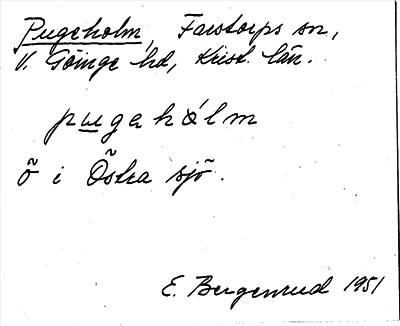 Pugeholm, Farstorps sn,
V. Göinge hd, Krist. län.
pugahólm
ö i Östra sjö.
E. Bergenrud 1951